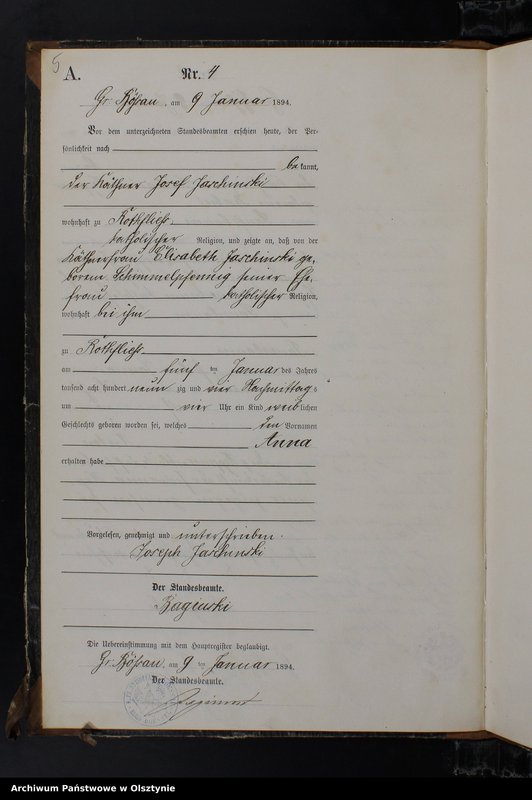 5
A. Nr. 4
Gr. Bößau, am 9 Januar 1894.
Vor dem unterzeichneten Standesbeamten erschien heute, der Per-
sönlichkeit nach
be kannt,
der Käthner Josef Jaschinski
wohnhaft zu Rothfließ
katholischer Religion, und zeigte an, daß von der
Käthnerfrau Elisabeth Jaschinski ge-
borenen Schimmelpfennig seiner Ehe-
frau katholischer Religion,
wohnhaft bei ihm
zu Rothfließ
am fünf ten Januar des Jahres
tausend acht hundert neun zig und vier Nachmittag s
um vier Uhr ein Kind weib lichen
Geschlechts geboren worden sei, welches den Vornamen
Anna
erhalten habe
Vorgelesen, genehmigt und unterschrieben.
Joseph Jaschinski
Der Standesbeamte.
Baginski
Die Uebereinstimmung mit dem Hauptregister beglaubigt.
Gr. Bößau, am 9 ten Januar 1894.
Der Standesbeamte.
Archiwum Państwowe w Olsztynie